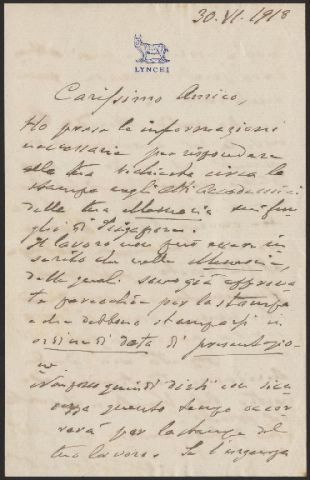 30. VI. 1918
LYNCEI
Carissimo Amico,
Ho preso le informazioni
necessarie per rispondere
alla tua richiesta circa la
stampa negli Atti Accademici
della tua Memoria sui fun-
ghi di Singapore.
Il lavoro non può essere in
serito che nelle Memorie,
delle quali sono già approva
te parecchie per la stampa
e che debbono stamparsi in
ordine di data di presentazio-
ne
Non posso quindi dirti con sicu
rezza quanto tempo occor
rerà per la stampa del
tuo lavoro. Se l'urgenza